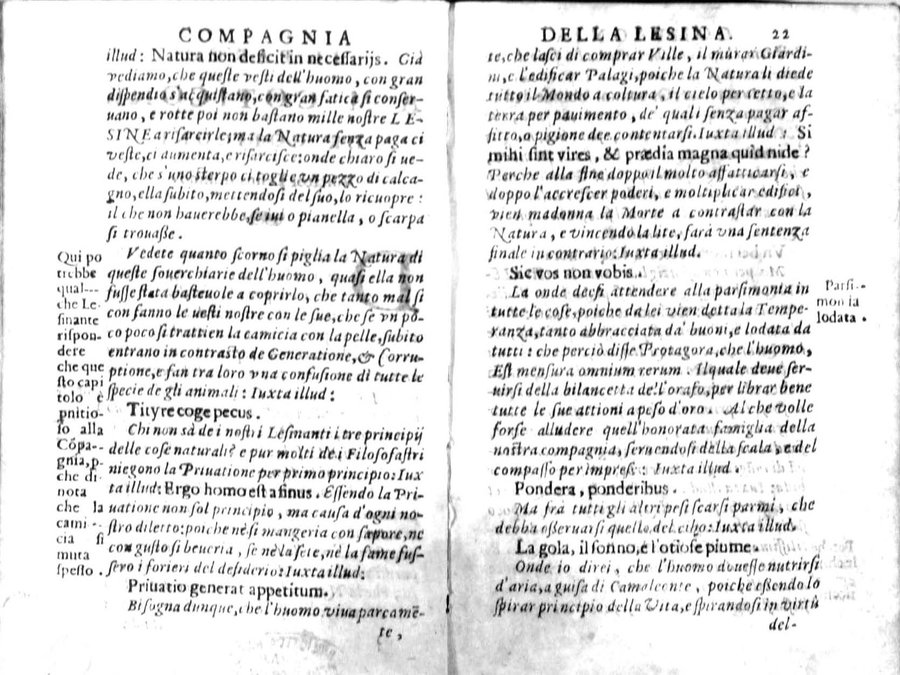 COMPAGNIA
illud: Natura non deficit in necessarijs. Già
vediamo, che queste vesti dell'huomo, con gran
dispendio s'acquistano, con gran fatica si conser-
uano, e rotte poi non bastano mille nostre LE-
SINE a risarcirle; ma la Natura senza paga ci
veste, ci aumenta, e risarcisce: onde chiaro si ue-
de, che s'uno sterpo ci toglie vn pezzo di calca-
gno, ella subito, mettendosi del suo, lo ricuopre:
il che non hauerebbe, se iui o pianella, o scarpa
si trouasse.
Vedete quanto scorno si piglia la Natura di
queste souerchiarie dell'huomo, quasi ella non
fusse stata basteuole a coprirlo, che tanto mal si
confanno le uesti nostre con le sue, che se vn po-
co poco si trattien la camicia con la pelle, subito
entrano in contrasto de Generatione, & Corru-
ptione, e fan tra loro vna confusione di tutte le
specie de gli animali: Iuxta illud:
Tityre coge pecus.
Chi non sà de i nostri Lesinanti i tre principij
delle cose naturali? e pur molti de i Filosofastri
niegono la Priuatione per primo principio: Iux
ta illud: Ergo homo est asinus. Essendo la Pri-
uatione non sol principio, ma causa d'ogni no-
stro diletto: poiche nè si mangeria con sapore, ne
con gusto si beueria, se nè la sete, nè la fame fus-
sero i forieri del desiderio: Iuxta illud:
Priuatio generat appetitum.
Bisogna dunque, che l'huomo viua parcamẽ-
te,
Qui po
trebbe
qual---
che Le-
sinante
rispon-
dere
che que
sto capi
tolo è
pnitio-
so alla
Cõpa-
gnia, p-
che di-
nota
che la
cami--
cia si
muta
spesso.
DELLA LESINA. 22
te, che lasci di comprar Ville, il murar Giardi-
ni, e l'edificar Palagi, poiche la Natura li diede
tutto il Mondo a coltura, il cielo per tetto, e la
terra per pauimento, de' quali senza pagar af-
fitto, o pigione dee contentarsi. Iuxta illud: Si
mihi sint vires, & prædia magna quid nide?
Perche alla fine doppo il molto affatticarsi, e
doppo l'accrescer poderi, e moltiplicar edifici,
vien madonna la Morte a contrastar con la
Natura, e vincendo la lite, farà vna sentenza
finale in contrario: Iuxta illud.
Sic vos non vobis.
La onde deesi attendere alla parsimonia in
tutte le cose, poiche da lei vien detta la Tempe-
ranza, tanto abbracciata da' buoni, e lodata da
tutti: che perciò disse Protagora, che l'huomo,
Est mensura omnium rerum. Il quale deue ser-
uirsi della bilancetta de l'orafo, per librar bene
tutte le sue attioni a peso d'oro. Al che volle
forse alludere quell'honorata famiglia della
nostra compagnia, seruendosi della scala, e del
compasso per impresa: Iuxta illud.
Pondera, ponderibus.
Ma frà tutti gli altri pesi scarsi parmi, che
debba osseruarsi quello del cibo: Iuxta illud.
La gola, il sonno, e l'otiose piume.
Onde io direi, che l'huomo douesse nutrirsi
d'aria, a guisa di Camaleonte, poiche essendo lo
spirar principio della Vita, e spirandosi in virtù
del-
Parsi--
monia
lodata.